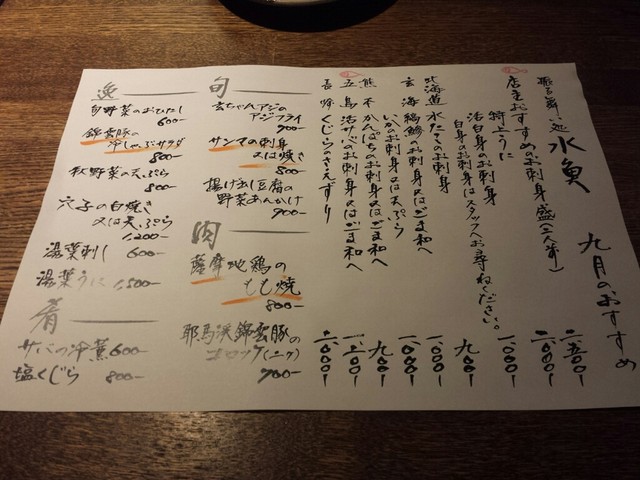 九月のおすすめ
水魚
店主おすすめのお刺身盛(二人前)
二、五〇〇ー
特上うに
二、〇〇〇ー
活白身のお刺身
一、〇〇〇ー
白身のお刺身はスタッフへお尋ねください。
北海道 水たこのお刺身
九〇〇ー
玄海 縞鯵のお刺身又はごま和へ
一、〇〇〇ー
いかのお刺身又は天ぷら
一、〇〇〇ー
熊本 かんぱちのお刺身又はごま和へ
九〇〇ー
五島 活サバのお刺身又はごま和へ
一、二〇〇ー
くじらのさえずり
二、〇〇〇ー
旬
玄ちゃんアジの
アジフライ
900-
サンマの刺身
又は焼き
800-
揚げ出し豆腐の
野菜あんかけ
900-
肉
薩摩地鶏の
もも焼
800-
耶馬渓錦雲豚の
コロッケ(二ケ)
700-
逸
旬野菜のおひたし
600-
錦雲豚の
冷しゃぶサラダ
800-
秋野菜の天ぷら
800-
穴子の白焼き
又は天ぷら
1,200-
湯葉刺し 600-
湯葉うに 1,500-
肴
サバの冷燻 600-
塩くじら 800-